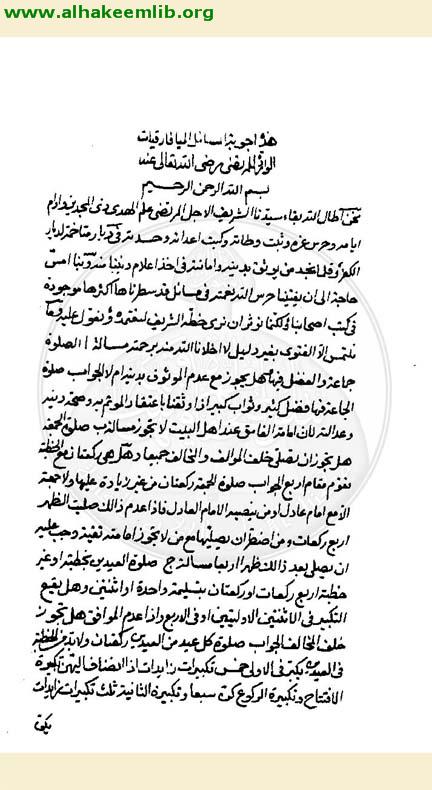 www.alhakeemlib.org
هذه اجوبة المسائل الميافارقيات
الوافر المرتضى رضى الله تعالى عنه
بسم الله الرحمن الرحيم
نحن اطال الله بقاء سيدنا الشريف الاجل المرتضى علم الهدى ذى المجدين وادام
ايامه وحرس عزه وثبت وطاته وكبت اعدائه وحسدته فى ديار متاخمة لديار
الكفر وقل ما نجد من يوثق بدينه وامانته فى اخذ اعلام ديننا منه وبنا امس
حاجة الى ان يفتينا حرس الله نعمته فى مسائل قد سطرناها اكثرها موجودة
فى كتب اصحابنا ولكنا نوثر ان نرى خطه الشريف لنعتمده ونعول عليه و
نلتمس الا الفتوى بغير دليل لا اخلانا الله منه برحمته مسالة ا الصلوة
جماعة والفضل فيها هل يجوز مع عدم الموثوق بدينه ام لا الجواب صلوة
الجماعة فيها فضل كثير وثواب كبير اذا وثقنا باعتقاد المؤتم به وصحة دينه
وعدالته لان امامة الفاسق عند اهل البيت لا تجوز مسالة ب صلوة الجمعة
هل يجوز ان يصلى خلف المؤالف والمخالف جميعا وهل هى ركعتان مع الخطبة
تقوم مقام اربع الجواب صلوة الجمعة ركعتان من غير زيادة عليها ولا جمعة
الا مع امام عادل او من ينصبه الامام العادل فاذا عدم ذالك صليت الظهر
اربع ركعات ومن اضطر ان يصليها مع من لا تجوز امامته تقية وجب عليه
ان يصلى بعد ذالك ظهرا اربعا مسالة ج صلوة العيدين بخطبة او غير
خطبة اربع ركعات او ركعتان بتسليمة واحدة او اثنتين وهل يقع
التكبير فى الاثنتين الاوليين او فى الاربع واذا عدم الموافق هل تجوز
خلف المخالف الجواب صلوة كل عيد من العيدين ركعتان ولا بد من الخطبة
فى العيدين يكبر فى الاولى خمس تكبيرات زايدات اذا انضاف اليهن تكبيرة
الافتتاح وتكبيرة الركوع كن سبعا وتكبيرة الثانية ثلث تكبيرات زايدات